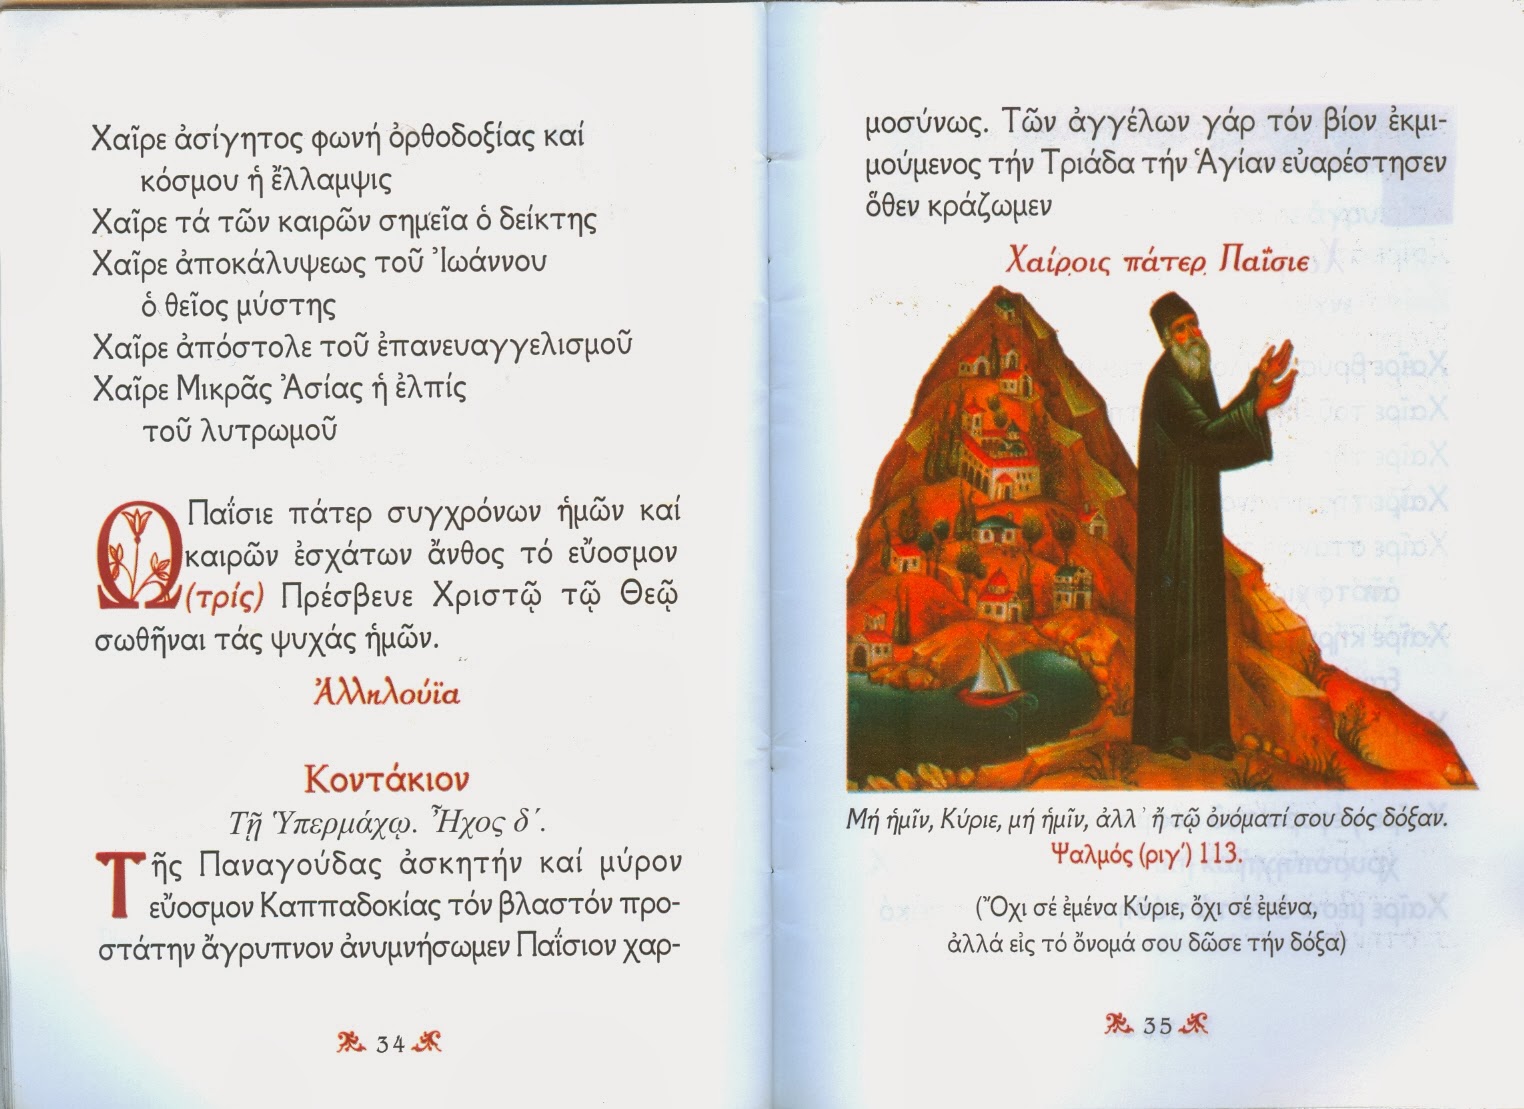 Χαῖρε ἀσίγητος φωνή ὀρθοδοξίας καί
κόσμου ἡ ἔλλαμψις
Χαῖρε τά τῶν καιρῶν σημεῖα ὁ δείκτης
Χαῖρε ἀποκάλυψεως τοῦ Ἰωάννου
ὁ θεῖος μύστης
Χαῖρε ἀπόστολε τοῦ ἐπανευαγγελισμοῦ
Χαῖρε Μικρᾶς Ἀσίας ἡ ἐλπίς
τοῦ λυτρωμοῦ
Ω Παΐσιε πάτερ συγχρόνων ἡμῶν καί
καιρῶν ἐσχάτων ἄνθος τό εὔοσμον
(τρίς) Πρέσβευε Χριστῷ τῷ Θεῷ
σωθῆναι τάς ψυχάς ἡμῶν.
Ἀλληλούϊα
Κοντάκιον
Τῇ Ὑπερμάχῳ. Ἦχος δ΄.
Τῆς Παναγούδας ἀσκητήν καί μύρον
εὔοσμον Καππαδοκίας τόν βλαστόν προ-
στάτην ἄγρυπνον ἀνυμνήσωμεν Παΐσιον χαρ-
34
μοσύνως. Τῶν ἀγγέλων γάρ τόν βίον ἐκμι-
μούμενος τήν Τριάδα τήν Ἁγίαν εὐαρέστησεν
ὅθεν κράζωμεν
Χαίροις πάτερ Παΐσιε
Μή ἡμῖν, Κύριε, μή ἡμῖν, ἀλλ᾽ ἤ τῷ ὀνόματί σου δός δόξαν.
Ψαλμός (ριγ΄) 113.
(Ὄχι σέ ἐμένα Κύριε, ὄχι σέ ἐμένα,
ἀλλά εἰς τό ὄνομά σου δῶσε τήν δόξα)
35